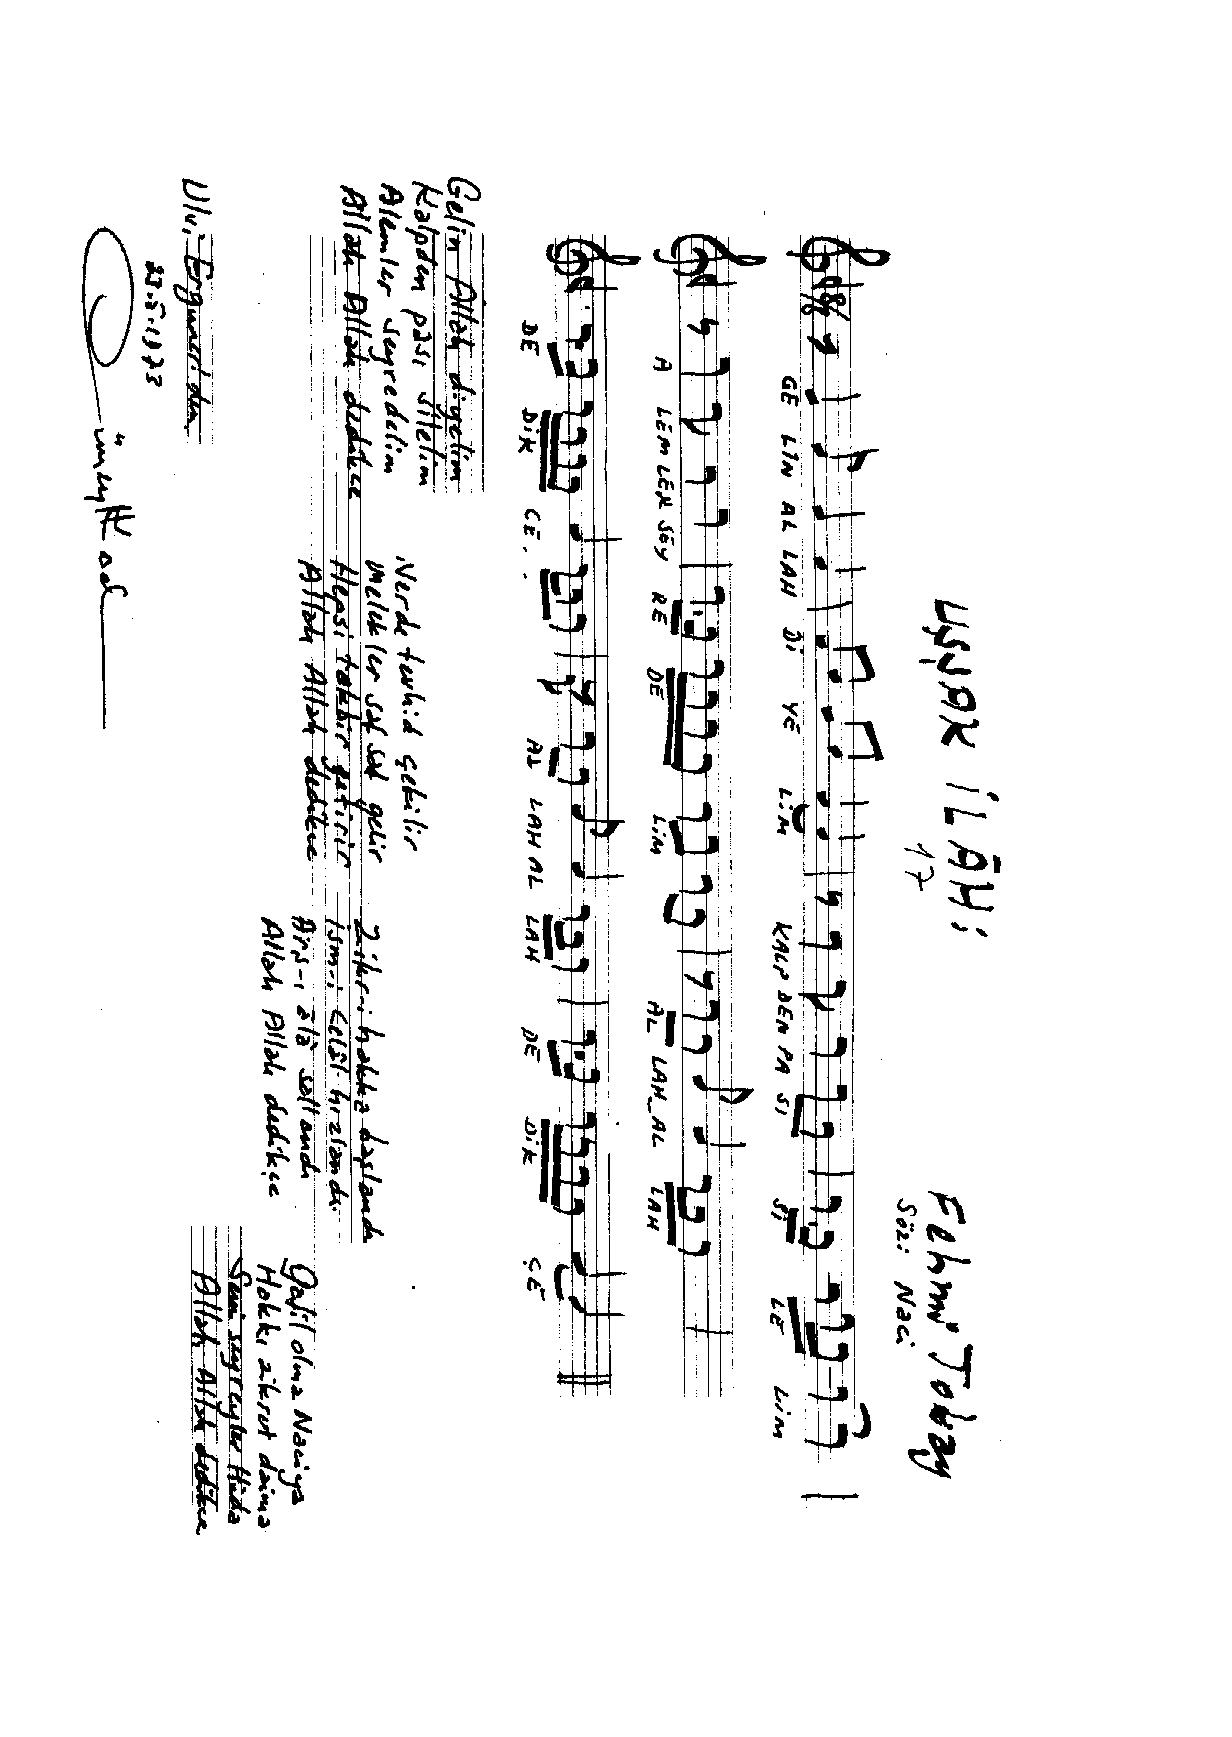 UŞŞAK İLÂHİ
17
Fehmi Tokay
Söz: Naci
GE LİN AL LAH Dİ YE LİM KALP DEN PA SI Sİ LE LİM
A LEM LER SEY RE DE LİM AL LAH_AL LAH
DE DİK CE . . AL LAH AL LAH DE DİK ÇE
Gelin Allah diyelim
Kalpden pası silelim
Alemler seyredelim
Allah Allah dedikce
Nerde tevhid çekilir
Melekler saf saf gelir
Hepsi tekbir getirir
Allah Allah dedikce
Zikr-i hakka başlandı
ism-i Celâl hızlandı
Arş-ı âlâ sallandı
Allah Allah dedikçe
Gafil olma Naciya
Hakkı zikret daima
Seni seyreyler Hüda
Allah Allah dedikce
Ulvi Erguner'den